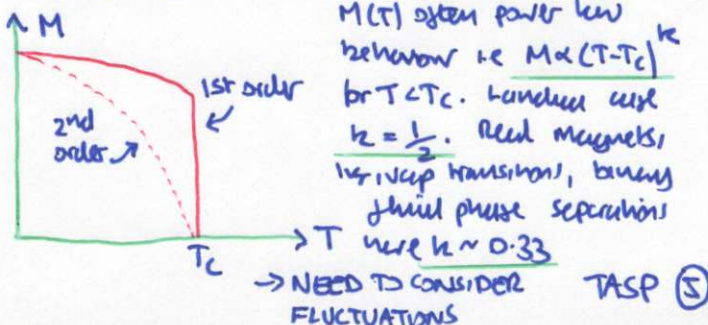 M
1st order
2nd
order
T
Tc
M(T) often power law
behaviour ie M∝(T-Tc)^k
for T<Tc. Landau case
k = 1/2. Real magnets,
liq, vap transitions, binary
fluid phase separations
have k ~ 0.33
→ NEED TO CONSIDER
FLUCTUATIONS
TASP ⑤